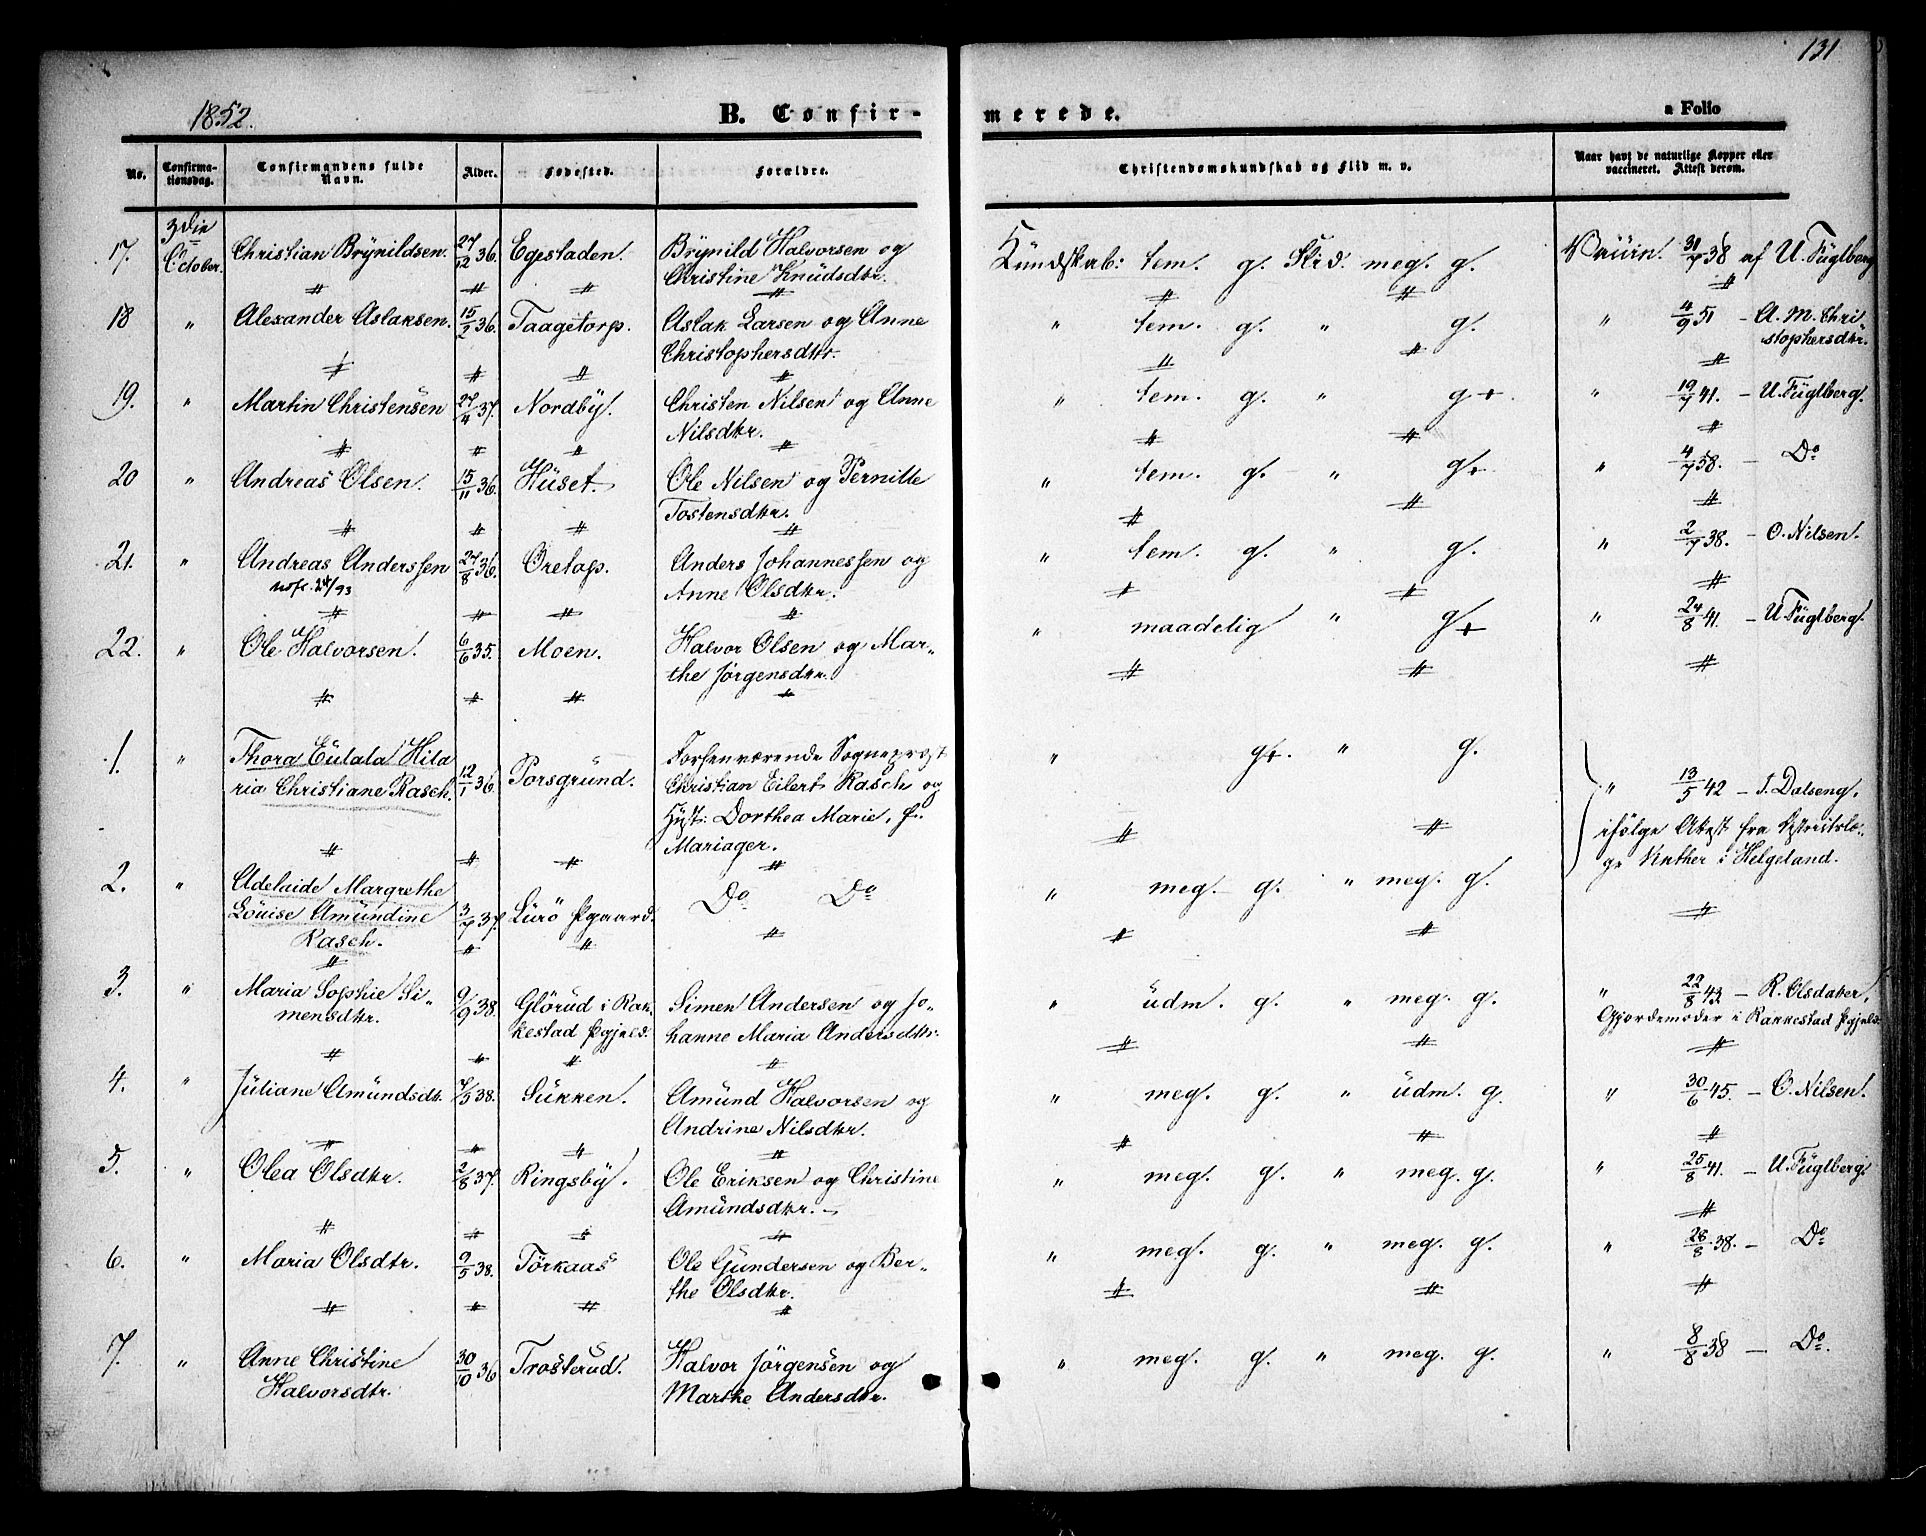 131
1852.
B. Confirmerede.
a Folio
No. Confirmationsdag. Confirmandens fulde Navn. Alder. Fødested. Forældre. Christendomskundskab og Flid m. v. Naar havt de naturlige Kopper eller vaccineret. Attest derom.
17. 3die October. Christian Brÿnildsen. 27/12 36. Egestaden. Brÿnild Halvorsen og Christine Knüdsdtr. Kündskab: tem. g. Flid. meg. g. Vaccin. 31/7 38 af U. Füglberg
18 " Alexander Aslaksen. 15/2 36. Taagetorp. Aslak Larsen og Anne Christophersdtr. " tem. g. " g. " 4/9 51 – A. M. Christophersdtr.
19. " Martin Christensen 27/4 37. Nordbÿ. Christen Nilsen og Anne Nilsdtr. " tem. g. " g+. " 19/7 41. – U. Füglberg.
20 " Andreas Olsen. 15/11 36. Hüset. Ole Nilsen og Pernille Tostensdtr. " tem. g. " g+ " 4/7 38. – Do
21. " Andreas Anderssen 27/8 36. Oretop. Anders Johannessen og Anne Olsdtr. " tem. g. " g. " 2/7 38. – O. Nilsen.
22. " Ole Halvorsen. 6/6 35. Moen. Halvor Olsen og Marthe Jørgensdtr. " maadelig " g+ " 24/8 41. – U. Füglberg.
1. " Thora Eülala Hilaria Christiane Rasch. 12/1 36. Porsgründ. Forhenværende Sognepræst Christian Eilert Rasch og Hust: Dorthea Marie, f. Mariager. " g+. " g. " 13/5 42 – J. Dalseng, ifølge Attest fra Distriktslæge in Helgeland.
2. " Adelaide Margrethe Löuise Amündine Rasch. 3/7 37. Lürö Pgaard. Do Do " meg. g. " meg. g.
3. " Maria Sophie Simensdtr. 9/9 38. Glörud i Rakkestad Pgjeld. Simen Andersen og Johanne Maria Andersdtr. " üdm. g. " meg. g. " 22/8 43. – R. Olsdatter, Gjordemoder i Rakkestad Pgjeld.
4. " Jüliane Amündsdtr. 7/3 38. Sükken. Amünd Halvorsen og Andrine Nilsdtr. " meg. g. " üdm. g. " 30/6 45. – O. Nilsen.
5. " Olea Olsdtr. 2/8 37. Ringsbÿ. Ole Eriksen og Christine Amündsdtr. – " meg. g. " meg. g. " 25/8 41. – U. Füglberg.
6. " Maria Olsdtr. 9/5 38. Törkaas Ole Gundersen og Berthe Olsdtr. " meg. g. " meg. g. " 28/8 38. – Do
7. " Anne Christine Halvorsdtr. 30/10 36 Trosterud. Halvor Jørgensen og Marthe Andersdtr. " meg. g. " meg. g. " 8/8 38 – Do.